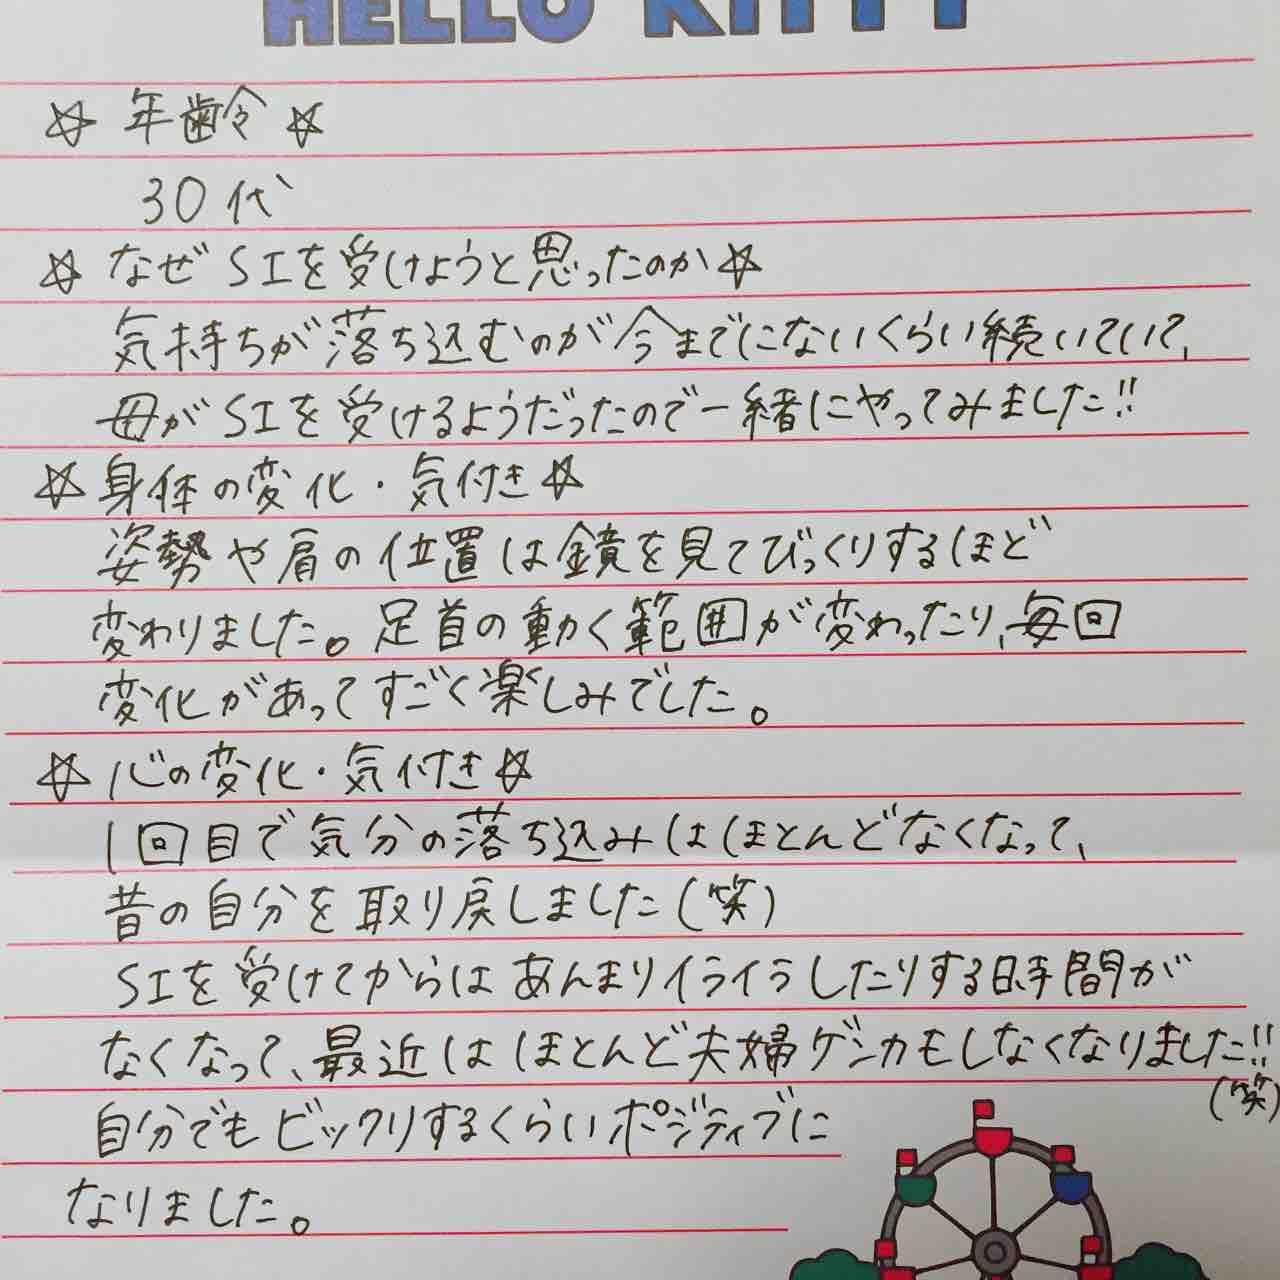 HELLO KITTY
☆ 年齢 ☆
30代
☆ なぜSIを受けようと思ったのか☆
気持ちが落ち込むのが今までにないくらい続いていて、
母がSIを受けるようだったので一緒にやってみました!!
☆ 身体の変化・気付き☆
姿勢や肩の位置は鏡を見てびっくりするほど
変わりました。足首の動く範囲が変わったり、毎回
変化があってすごく楽しみでした。
☆ 心の変化・気付き☆
1回目で気分の落ち込みはほとんどなくなって、
昔の自分を取り戻しました(笑)
SIを受けてからはあんまりイライラしたりする時間が
なくなって、最近はほとんど夫婦ゲンカもしなくなりました!!
(笑)
自分でもビックリするくらいポジティブに
なりました。